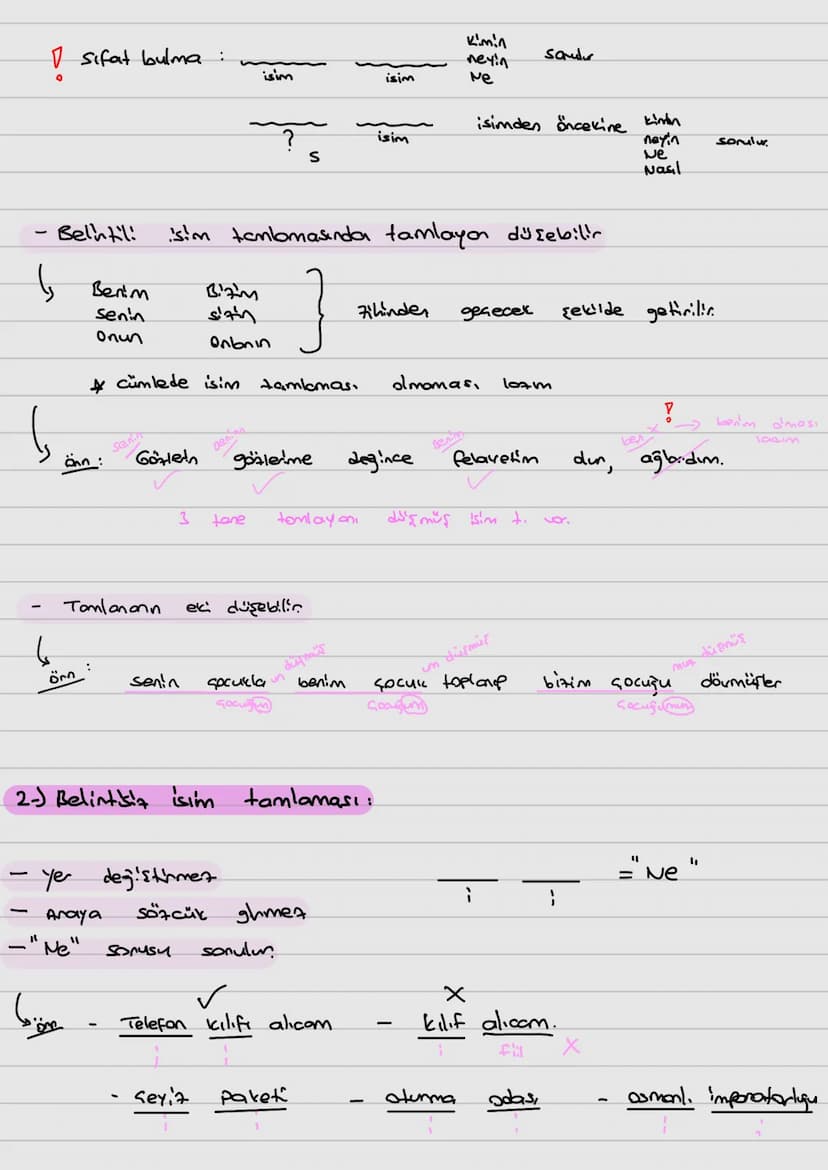 ! Sıfat bulma : isim isim kimin neyin Ne sorulur
? S isim isimden öncekine kimin neyin Ne Nasıl sorulur.
- Belirtili isim tamlamasında tamlayan düşebilir
Benim Bizim
senin sizin
onun onların
zihinden geçecek şekilde getirilir.
* cümlede isim tamlaması olmaması lazım
senin benim benim ben x ! → benim olması lazım
örn: Gözlerin gözlerime değince felaketim olur, ağlardım.
3 tane tamlayanı düşmüş isim t. var.
- Tamlananın eki düşebilir.
un düşmüş um düşmüş muz düşmüş
örn: senin çocukla benim çocuk toplanıp bizim çocuğu dövmüşler
çocuğun çocuğum çocuğumuz
2-) Belirtisiz isim tamlaması:
- Yer değiştirmez
i i = "Ne"
- Araya sözcük girmez
- "Ne" sorusu sorulur.
✓ X
örn - Telefon kılıfı alıcam - kılıf alıcam.
i i i fiil X
- Çeyiz paketi - oturma odası - osmanlı imparatorluğu
i i i i i i